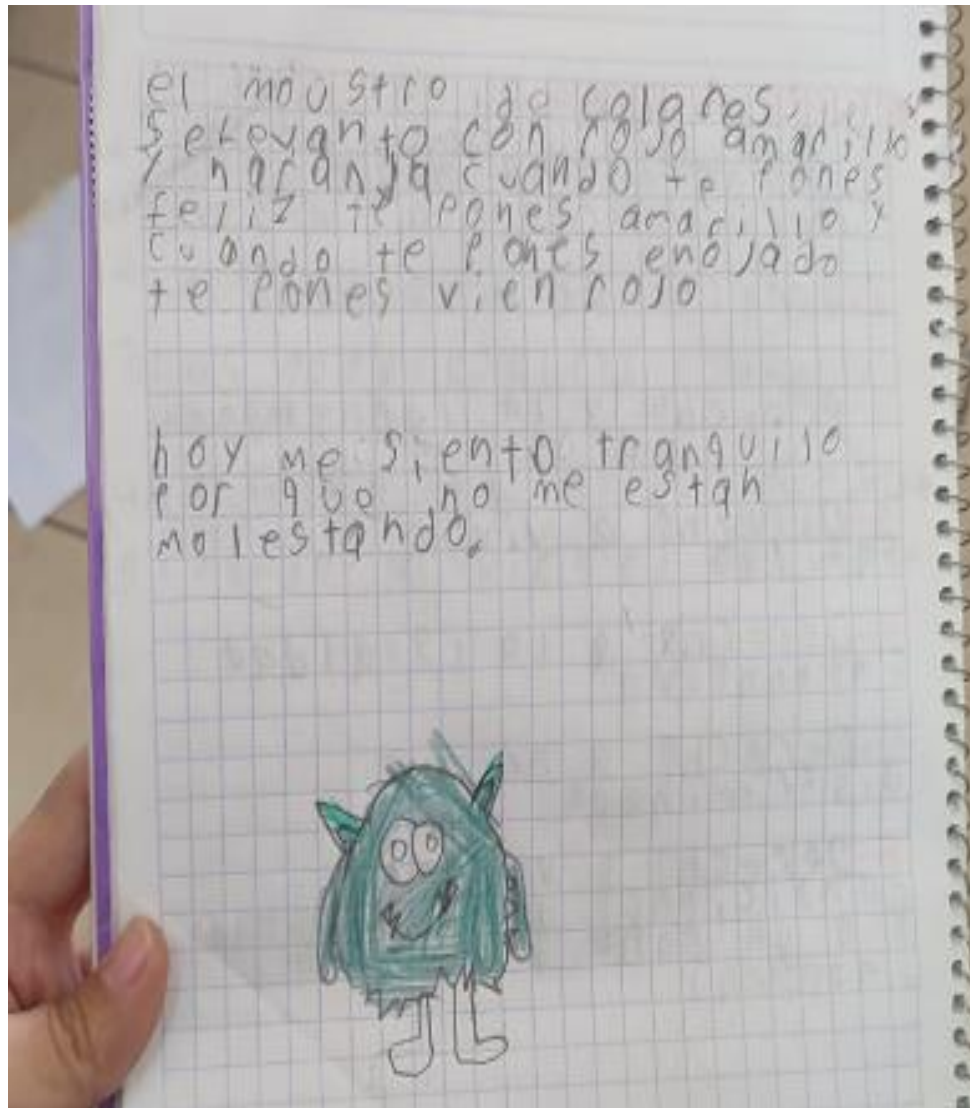 el moustro de colores.
Se levanto con rojo amarillo
y naranja cuando te pones
feliz te pones amarillo y
cuando te pones enojado
te pones vien rojo
hoy me siento tranquilo
por que no me estan
molestando.